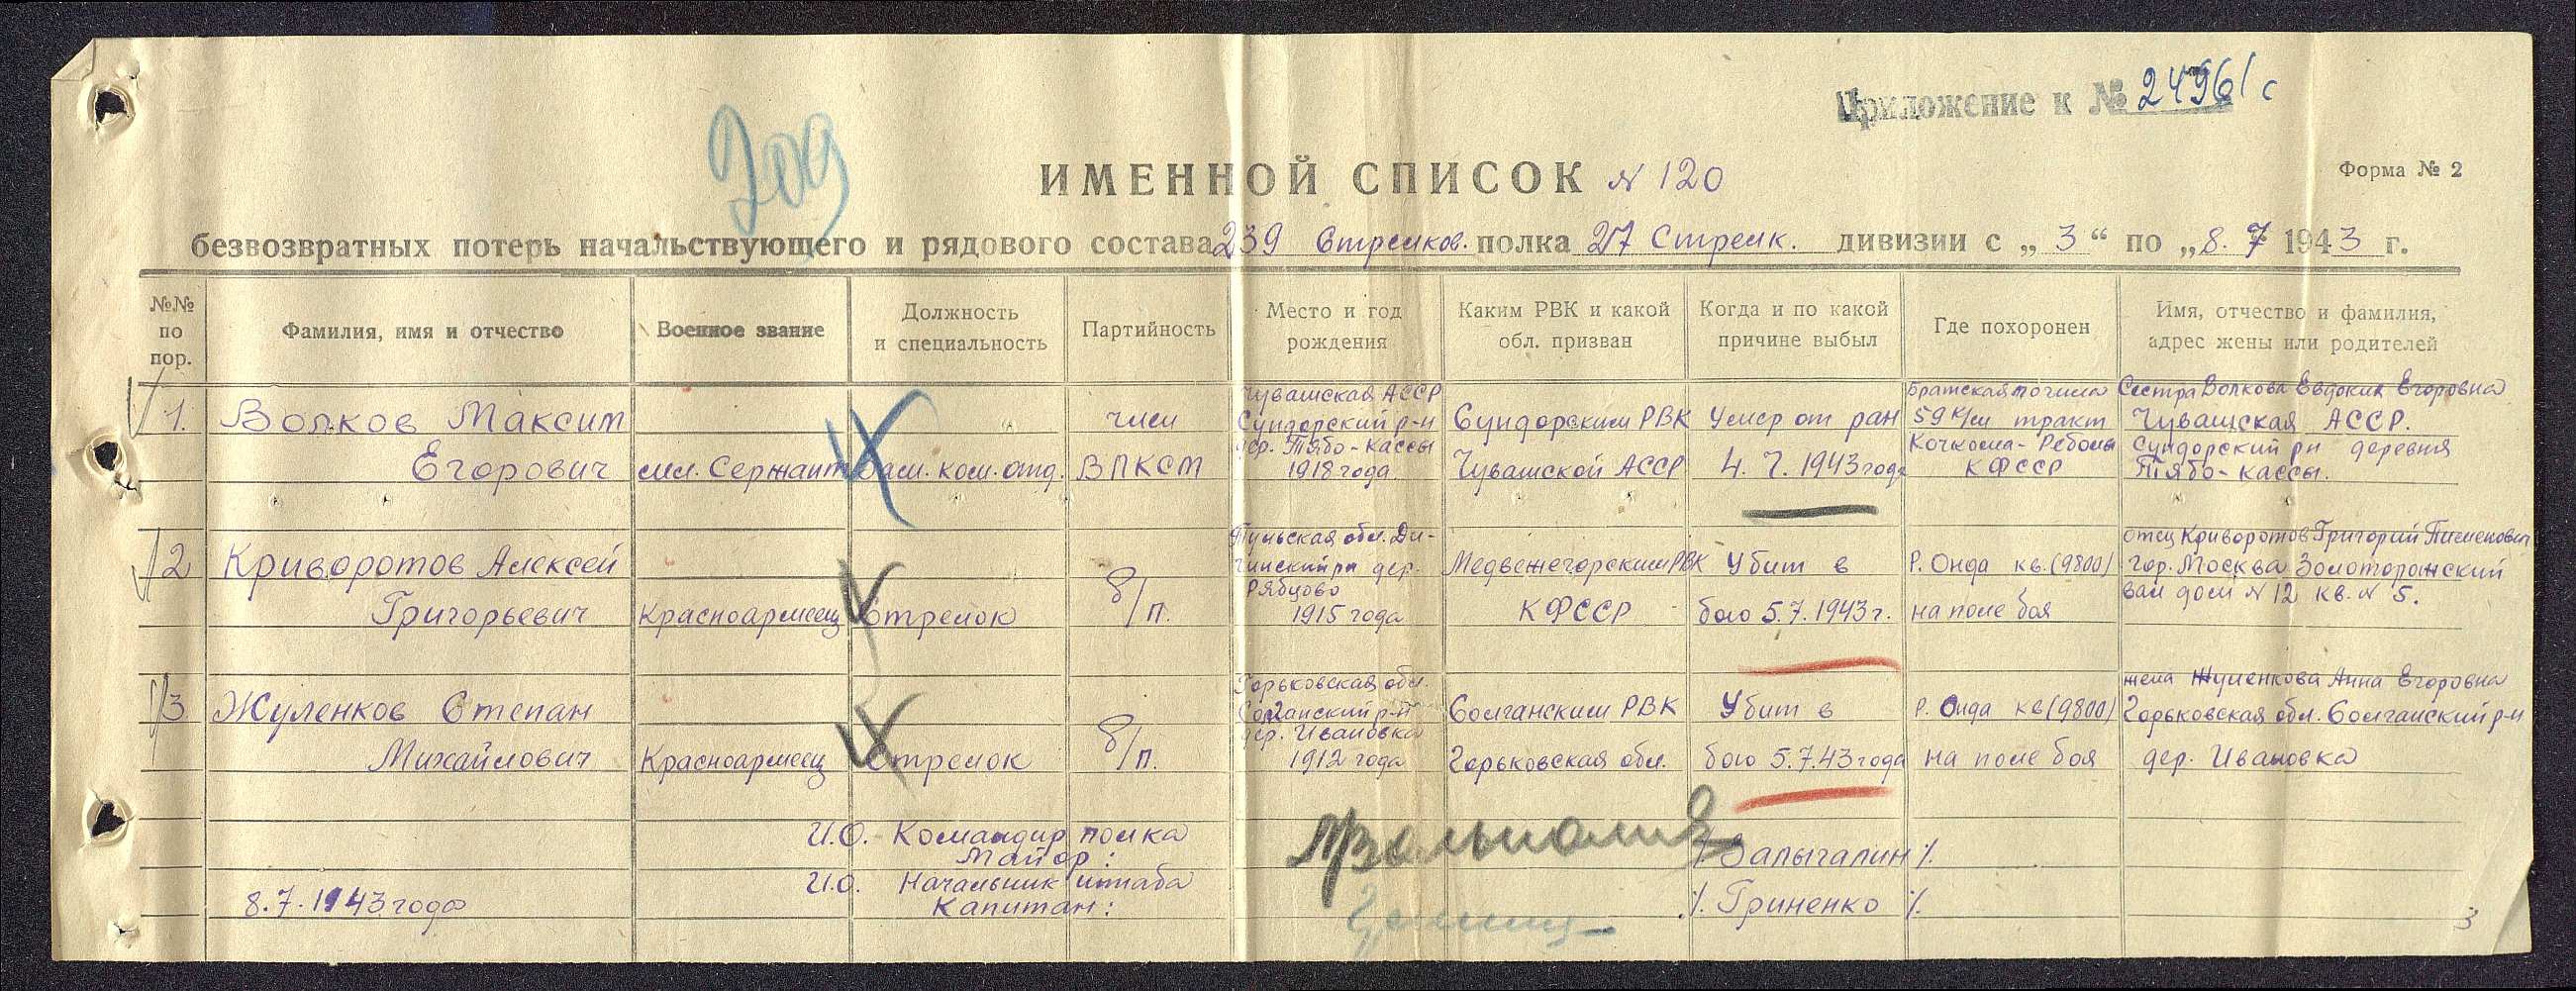 Приложение к № 24961с
209
ИМЕННОЙ СПИСОК N 120
Форма № 2
безвозвратных потерь начальствующего и рядового состава 239 Стрелков. полка 27 Стрелк. дивизии с „ 3 “ по „ 8. 7 1943 г.
№№ по пор.
Фамилия, имя и отчество
Военное звание
Должность и специальность
Партийность
Место и год рождения
Каким РВК и какой обл. призван
Когда и по какой причине выбыл
Где похоронен
Имя, отчество и фамилия, адрес жены или родителей
1. Волков Максим Егорович
мл. Сержант
Зам. ком. отд.
член ВЛКСМ
Чувашская АССР
Сундорский р-н
дер. Тябо-Кассы
1918 года
Сундорским РВК
Чувашской АССР
Умер от ран
4. 7. 1943 года
Братская могила
59 к/м тракт
Кочкома - Реболы
КФССР
Сестра Волкова Евдокия Егоровна
Чувашская АССР.
Сундорский рн деревня
Тябо-Кассы.
2 Криворотов Алексей
Григорьевич
Красноармеец
Стрелок
б/п.
Тульская обл.
дер.
Рябцово
1915 года
Медвежегорским РВК
КФССР
Убит в
бою 5.7.1943 г.
Р. Онда кв. (9800)
на поле боя
отец Криворотов Григорий
гор. Москва Золоторожский
вал дом N 12 кв. N 5.
3 Жуленков Степан
Михайлович
Красноармеец
Стрелок
б/п.
Горьковская обл.
Салганский р-н
дер. Ивановка
1912 года
Солганским РВК
Горьковская обл.
Убит в
бою 5.7.43 года
р. Онда кв (9800)
на поле боя
жена Жуленкова Анна Егоровна
Горьковская обл. Солганский р-н
дер. Ивановка
И.О. Командир полка
Майор:
/Залыгалин/.
И.О. Начальник штаба
Капитан:
/. Гриненко /.
8.7.1943 года
3